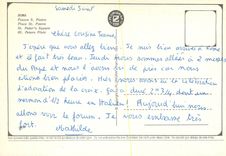 Samedi 3 août
ROMA
Piazza S. Pietro
Place St. Pierre
St. Peter's Square
St. Peters Platz
Chère cousine
J'espère que vous allez bien. Je suis bien arrivée à Rome
et il fait très beau. Jeudi nous sommes allées à 2 messes
du Pape et nous l'avons vu de près car nous
étions bien placées. Hier nous avons vu la
l'adoration de la croix. Ça a duré 2
moment d'1 heure en italien! Aujourd'hui nous
allons voir le forum. Je vous embrasse très
fort.
Mathilde